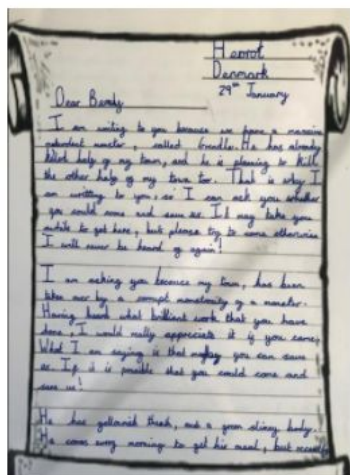 Heorot
Denmark
29th January
Dear Beody
I am writing to you because we have a massive
monster, called Grendle. He has already
killed half of my town, and he is planning to kill
the other half of my town too. That is why I
am writing to you, so I can ask you whether
you could come and save us. It may take you
to get here, but please try to come otherwise
I will never be heard of again!
I am asking you because my town, has been
taken over by a corrupt monstrosity of a monster.
Having heard what brilliant work that you have
done, I would really appreciate it if you came,
What I am saying is that you can save
us. If it is possible that you could come and
save us!
He has yellowish teeth, and a green slimey body.
He comes every morning to get his meal, but recently